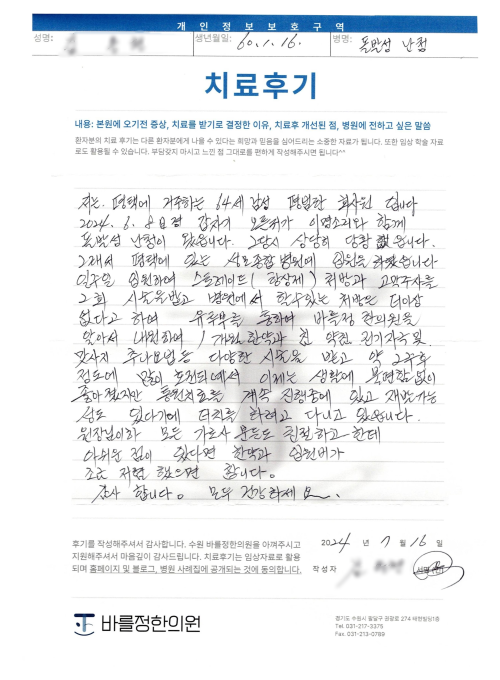 개인정보보호구역
성명:
생년월일: 60. 1. 16.
병명: 돌발성 난청
치료후기
내용: 본원에 오기전 증상, 치료를 받기로 결정한 이유, 치료후 개선된 점, 병원에 전하고 싶은 말씀
환자분의 치료 후기는 다른 환자분에게 나을 수 있다는 희망과 믿음을 심어드리는 소중한 자료가 됩니다. 또한 임상 학술 자료
로도 활용될 수 있습니다. 부담갖지 마시고 느낀 점 그대로를 편하게 작성해주시면 됩니다^^
저는 평택에 거주하는 64세 남성 평범한 회사원 입니다
2024. 6. 8일경 갑자기 오른쪽귀가 이명소리와 함께
돌발성 난청이 왔습니다. 그당시 상당히 당황 했습니다.
그래서 평택에 있는 종합병원에 입원을 하였습니다
일주일 입원하여 스트레이드( 항생제) 처방과 고막주사를
2회 시술을받고 병원에서 할수있는 처방은 더이상
없다고 하여 유튜브를 통하여 바를정 한의원을
찾아서 내원하여 1개월 한약과 침 약침 전기자극 및
마사지 추나요법등 다양한 시술을 받고 약 2주후
정도에 많이 호전되면서 이제는 생활에 불편함없이
좋아졌지만 통원치료를 계속 진행중에 있고 재발가능
성도 있다기에 더치료를 하려고 다니고 있습니다.
원장님이하 모든 간호사 분들도 친절하고 한데
아쉬운 점이 있다면 한약과 입원비가
조금 저렴 했으면 합니다.
감사 합니다. 모두 건강하세요.
후기를 작성해주셔서 감사합니다. 수원 바를정한의원을 아껴주시고
지원해주셔서 마음깊이 감사드립니다. 치료후기는 임상자료로 활용
되며 홈페이지 및 블로그, 병원 사례집에 공개되는 것에 동의합니다.
2024 년 7 월 16 일
작성자
바를정한의원
경기도 수원시 팔달구 권광로 274 태한빌딩1층
Tel. 031-217-3375
Fax. 031-213-0789